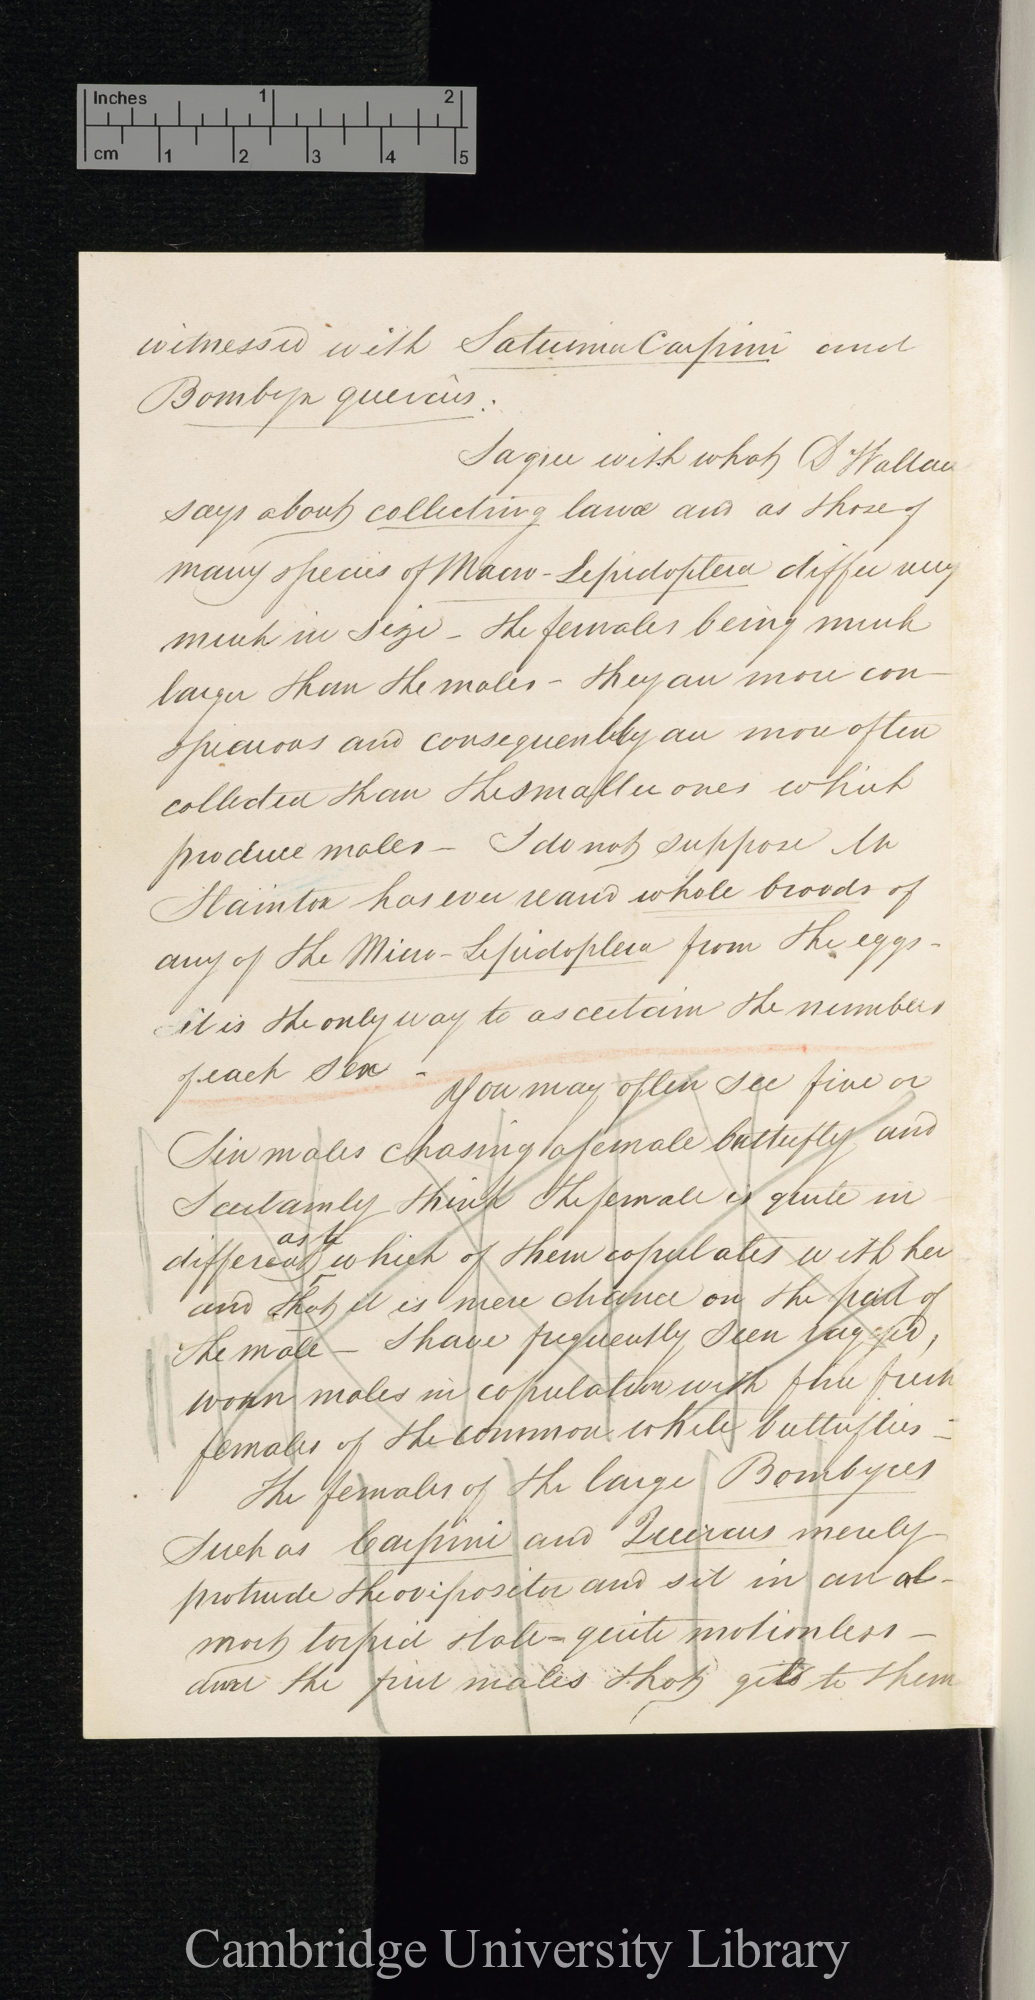 Inches 1 2
cm 1 2 3 4 5
witnessed with Saturnia Carpini and
Bombyx quercus.
I agree with what Dr Wallace
says about collecting larvæ and as those of
many species of Macro-Lepidoptera differ very
much in size - the females being much
larger than the males - they are more con-
spicuous and consequently are more often
collected than the smaller ones which
produce males - I do not suppose Mr
Stainton has ever reared whole broods of
any of the Micro-Lepidoptera from the eggs -
it is the only way to ascertain the numbers
of each sex -
You may often see five or
Six males chasing a female butterfly and
I certainly think the female is quite in
as to
different which of them copulates with her
and that it is mere chance on the part of
the male - I have frequently seen ragged,
worn males in copulation with fine fresh
females of the common white butterflies -
The females of the large Bombyces
Such as Carpini and Quercus merely
protrude the ovipositor and sit in an al-
most torpid state - quite motionless -
the first males that gets to them
Cambridge University Library